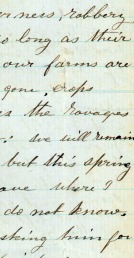 rness, robbery
so long as their
our farms are
gone, crops
s the ravages
we will remain
but this spring
ave where?
do not know.
sking him for